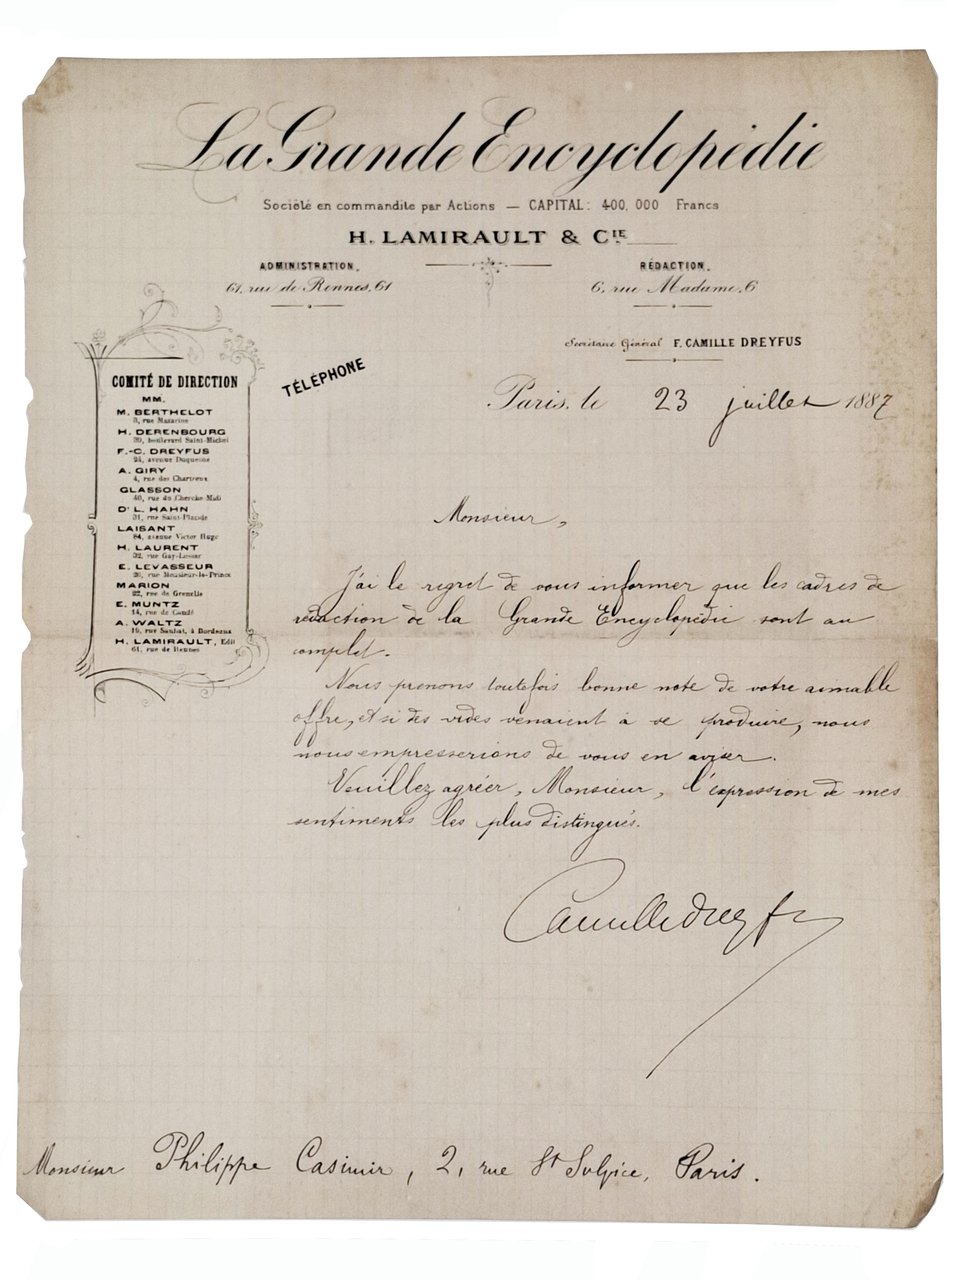 La Grande Encyclopédie
Société en commandite par Actions — CAPITAL: 400,000 Francs
H. LAMIRAULT & CIE
ADMINISTRATION.
61, rue de Rennes, 61
RÉDACTION.
6, rue Madame, 6
Secrétaire Général F. CAMILLE DREYFUS
TÉLÉPHONE
COMITÉ DE DIRECTION
MM.
M. BERTHELOT
3, rue Mazarine
H. DERENBOURG
30, boulevard Saint-Michel
F.-C. DREYFUS
24, avenue Duquesne
A. GIRY
4, rue des Chartreux
GLASSON
40, rue du Cherche-Midi
Dr L. HAHN
31, rue Saint-Placide
LAISANT
84, avenue Victor Hugo
H. LAURENT
32, rue Gay-Lussac
E. LEVASSEUR
26, rue Monsieur-le-Prince
MARION
22, rue de Grenelle
E. MUNTZ
14, rue de Condé
A. WALTZ
19, rue Saubat, à Bordeaux
H. LAMIRAULT, Edit
61, rue de Rennes
Paris, le 23 juillet 1887
Monsieur,
J'ai le regret de vous informer que les cadres de
rédaction de la Grande Encyclopédie sont au
complet.
Nous prenons toutefois bonne note de votre aimable
offre, et si des vides venaient à se produire, nous
nous empresserions de vous en aviser.
Veuillez agréer, Monsieur, l'expression de mes
sentiments les plus distingués.
Camille Dreyfus
Monsieur Philippe Casimir, 2, rue St Sulpice, Paris.